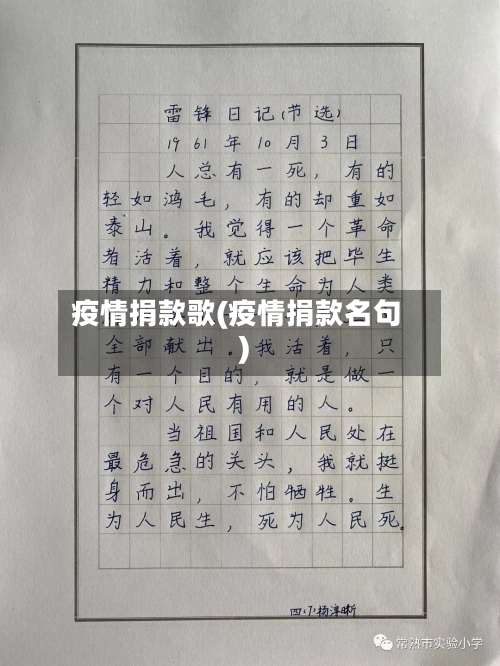 雷锋日记(节选)
1961年10月3日
人总有一死，有的
轻如鸿毛，有的却重如
泰山。我觉得一个革命
者活着，就应该把毕生
精力和整个生命为人类
疫情捐款歌(疫情捐款名句
)
全部献出。我活着，只
有一个目的，就是做一
个对人民有用的人。
当祖国和人民处在
最危急的关头，我就挺
身而出，不怕牺牲。生
为人民生，死为人民死。
四(7)杨淳晰
常熟市实验小学